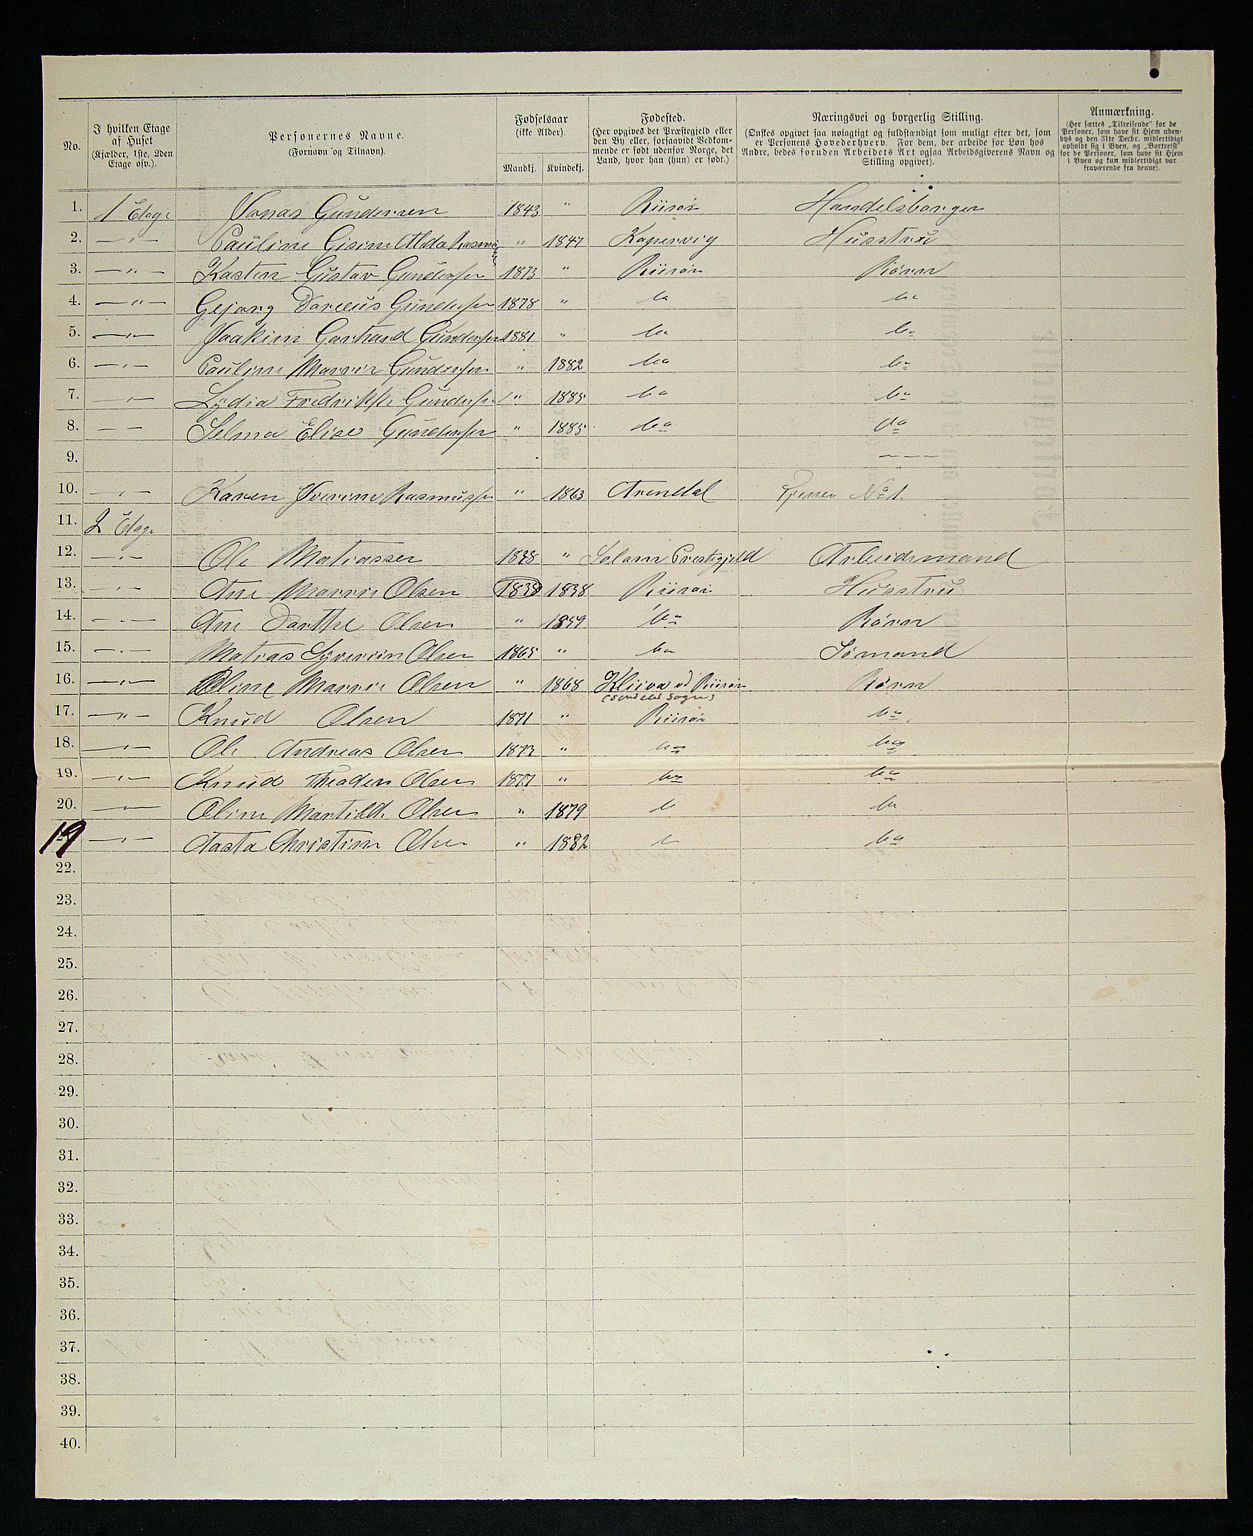 No.
I hvilken Etage af Huset (Kjælder, 1ste, 2den Etage osv.)
Personernes Navne. (Fornavn og Tilnavn).
Fødselsaar (ikke Alder). Mandkj. Kvindekj.
Fødested. (Her opgives det Præstegjeld eller den By eller, forsaavidt Vedkommende er født udenfor Norge, det Land, hvor han (hun) er født.)
Næringsvei og borgerlig Stilling. (Ønskes opgivet saa nøiagtigt og fuldstændigt som muligt efter det, som er Personens Hovederhverv. For dem, der arbeide for Løn hos Andre, bedes foruden Arbeidets Art ogsaa Arbeidsgiverens Navn og Stilling opgivet).
Anmærkning. (Her sættes „Tilreisende“ for de Personer, som have sit Hjem udenbys og den 31te Decbr. midlertidigt opholdt sig i Byen, og „Bortreist“ for de Personer, som have sit Hjem i Byen og kun midlertidigt var fraværende fra denne).
1. 1 Etage Jonas Gundersen 1843 " Riisør Handelsborger
2. — " — Pauline Gisine Alda " 1847 Kopervig Hustru
3. — " — Kasten Gustav Gundersen 1873 " Riisør Børn
4. — " — Gejorg Gundersen 1878 " do do
5. — " — Joakim Gerhard Gundersen 1881 " do do
6. — " — Pauline Marie Gundersen " 1882 do do
7. — " — Lydia Fredrikke Gunders " 1885 do do
8. — — Selma Elise Gundersen " 1885 do do
9. - - - -
10. — " — Karen Rasmuss " 1863 Arendal No 1.
11. 2 Etage
12. — " — Ole Matiassen 1838 " Solom Prestegjeld Arbeidsmand
13. — " — Ane Marie Olsen 1838 1838 Riisør Hustru
14. — " — Ane Dorthe Olsen " 1859 do Børn
15. — " — Matias Olsen 1865 " do Sømand
16. — " — Oline Marie Olsen " 1868 Riisør Børn
17. — " — Knud Olsen 1871 " Riisør do
18. — " — Ole Andreas Olsen 1873 " do do
19. — " — Knud Theodor Olsen 1877 " do do
20. — " — Oline Martilde Olsen " 1879 do do
19 — " — Aasta Christine Olsen " 1882 do do
22.
23.
24.
25.
26.
27.
28.
29.
30.
31.
32.
33.
34.
35.
36.
37.
38.
39.
40.